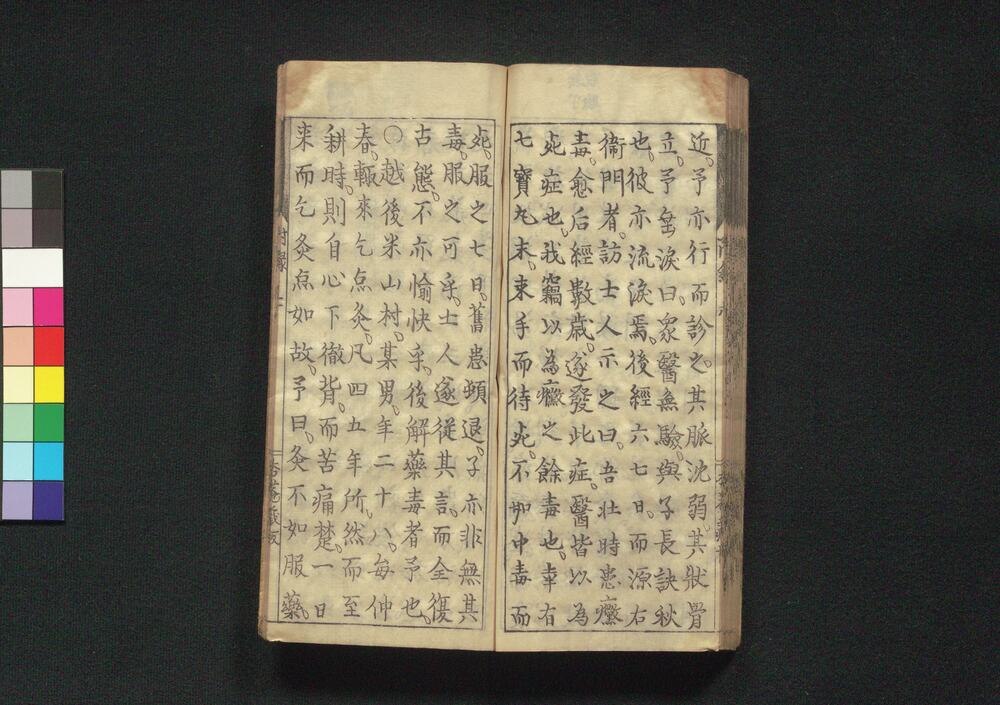 近。予亦行而診之。其脈沈弱。其状骨
立。予垩涙曰。衆醫無驗。與子長訣秋
也。彼亦流涙焉。後經六七日。而源右
衛門者。訪士人示之曰。吾壮時患癥
毒。愈后經數歳。遂發此症。醫皆以為
死症也。我竊以為癥之餘毒也。幸有
七寶丸末。束手而待死。不如中毒而
死。服之七日。舊患頓退。子亦非無其
毒。服之可乎。士人遂從其言。而全復
古態。不亦愉快乎。後解藥毒者予也。
〇越後米山村。某男。年二十八。每仲
春。輙來乞点灸。凡四五年所。然而至
耕時。則自心下徹背。而苦痛楚。一日
来而乞灸点如故。予曰。灸不如服藥。